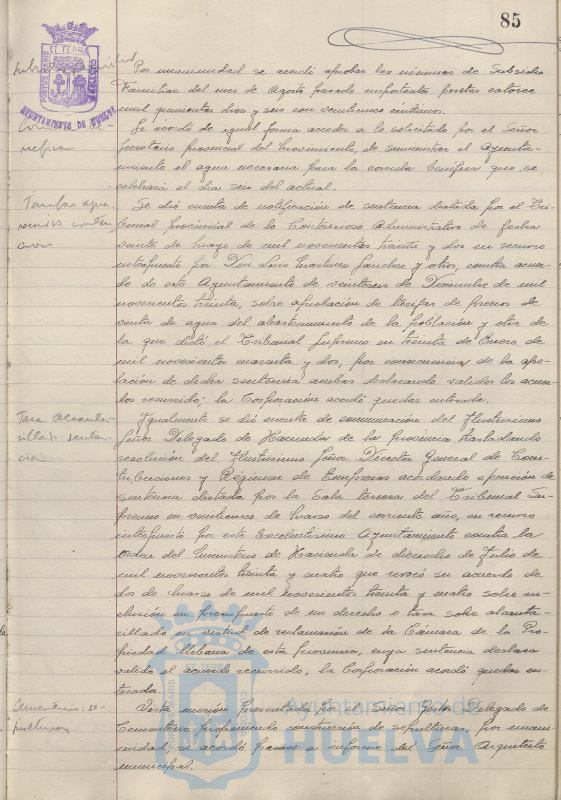 85
Por unanimidad se acordó aprobar las nóminas de Subsidio
Familiar del mes de Agosto pasado importante pesetas catorce
mil quinientas dos y seis con veinticinco céntimos.
Se acordó de igual forma acceder a lo solicitado por el Señor
Secretario provincial del Movimiento, de suministrar el Ayunta-
miento el agua necesaria para la corrida benéfica que se
celebrará el día seis del actual.
Tarifas agua.
recurso conten
cioso
Se dió cuenta de notificación de sentencia dictada por el Tri-
bunal provincial de lo Contencioso Administrativo de fecha
veinte de mayo de mil novecientos treinta y dos en recurso
interpuesto por Don Luis Martinez Sanchez y otros, contra acuer-
do de este Ayuntamiento de veintiseis de Diciembre de mil
novecientos treinta, sobre aprobación de tarifas de precios de
venta de agua del abastecimiento de la población y otra de
la que dictó el Tribunal Supremo en treinta de Enero de
mil novecientos cuarenta y dos, por consecuencia de la ape-
lación de dicha sentencia ambas declarando validos los acuer-
dos recurrido: la Corporación acordó quedar enterada.
Tasa Alcanta-
rillado. senten-
cia
Igualmente se dió cuenta de comunicación del Ilustrisimo
Señor Delegado de Hacienda de la provincia trasladando
resolución del Ilustrisimo Señor Director General de Con-
tribuciones y Régimen de Empresas acordando ejecución de
sentencia dictada por la Sala tercera del Tribunal Su-
premo en veinticinco de Marzo del corriente año, en recurso
interpuesto por este Excelentisimo Ayuntamiento contra la
Orden del Ministerio de Hacienda de dieciocho de Julio de
mil novecientos treinta y cuatro que revocó su acuerdo de
dos de Marzo de mil novecientos treinta y cuatro sobre in-
clusión en presupuesto de un derecho o tasa sobre alcanta-
rillado en virtud de reclamación de la Cámara de la Pro-
piedad Urbana de esta provincia, cuya sentencia declara
valido el acuerdo recurrido, la Corporación acordó quedar en-
terada.
Cementerio se-
pulturas
Vista moción presentada por el Señor Gestor Delegado de
Cementerio proponiendo construcción de sepulturas, por unani-
midad, se acordó pasase a informe del Señor Arquitecto
municipal.
AYUNTAMIENTO DE HUELVA
Ayuntamiento de
HUELVA